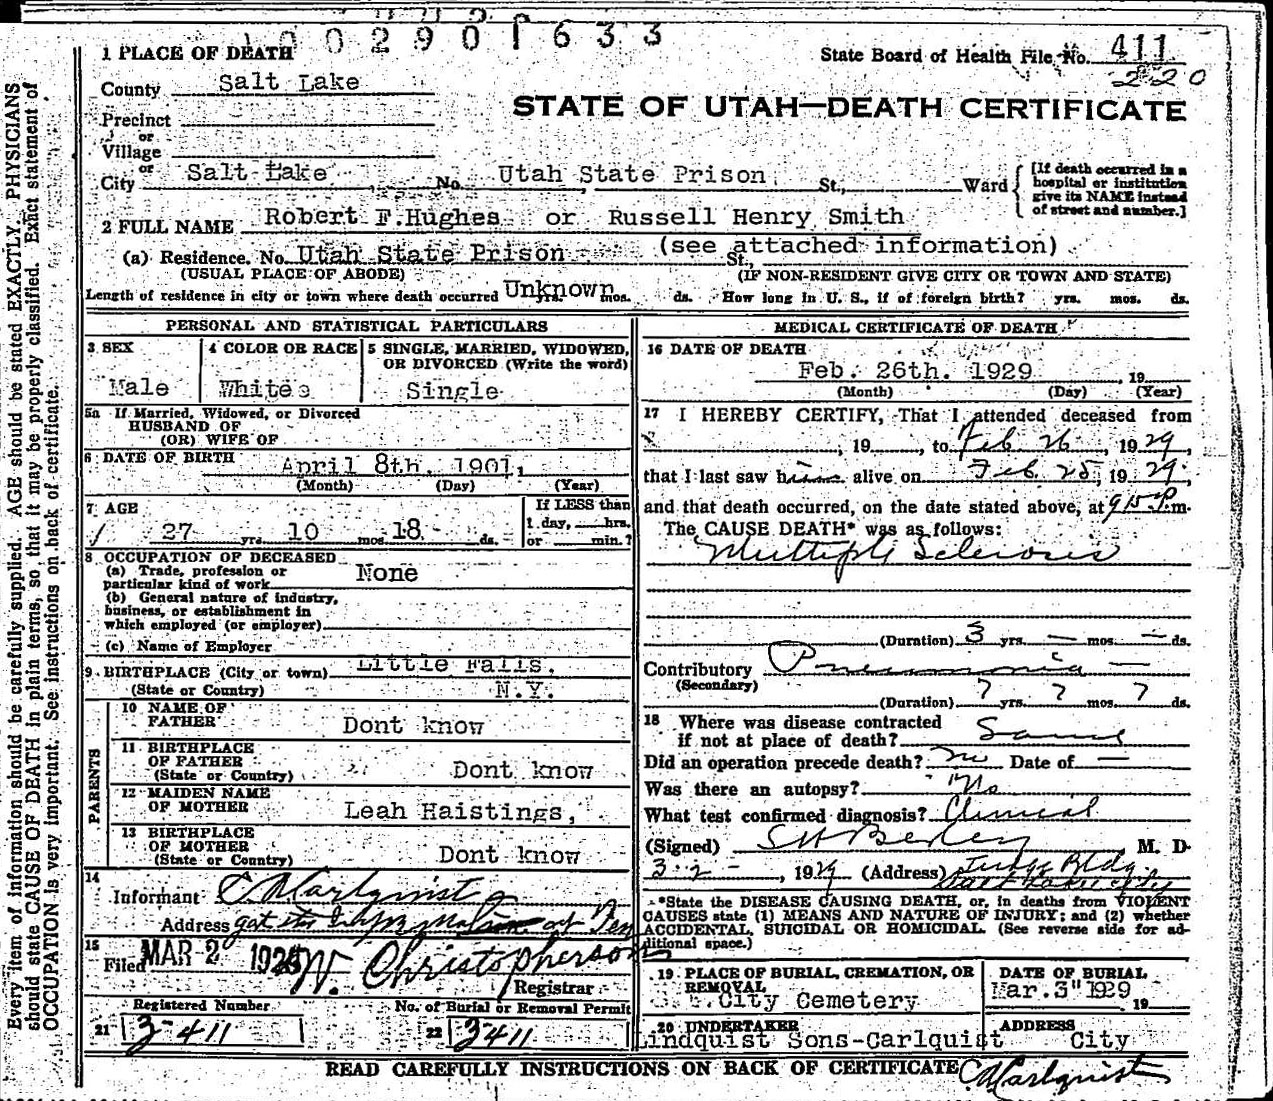 002901633
1 PLACE OF DEATH
State Board of Health File No. 411
220
County Salt Lake
STATE OF UTAH—DEATH CERTIFICATE
Precinct
or
Village
or
City Salt Lake No. Utah State Prison St., Ward
[If death occurred in a hospital or institution give its NAME instead of street and number.]
2 FULL NAME Robert F.Hughes or Russell Henry Smith
(a) Residence. No. Utah State Prison St., (see attached information)
(USUAL PLACE OF ABODE) (IF NON-RESIDENT GIVE CITY OR TOWN AND STATE)
Length of residence in city or town where death occurred Unknown yrs. mos. ds. How long in U. S., if of foreign birth? yrs. mos. ds.
PERSONAL AND STATISTICAL PARTICULARS
3 SEX Male
4 COLOR OR RACE White
5 SINGLE, MARRIED, WIDOWED, OR DIVORCED (Write the word)
Single
5a If Married, Widowed, or Divorced
HUSBAND OF
(OR) WIFE OF
6 DATE OF BIRTH April 8th, 1901,
(Month) (Day) (Year)
7 AGE
27 yrs. 10 mos. 18 ds.
If LESS than
1 day, hrs.
or min.?
8 OCCUPATION OF DECEASED
(a) Trade, profession or
particular kind of work None
(b) General nature of industry,
business, or establishment in
which employed (or employer)
(c) Name of Employer
9 BIRTHPLACE (City or town) Little Falls,
(State or Country) N.Y.
PARENTS
10 NAME OF
FATHER Dont know
11 BIRTHPLACE
OF FATHER
(State or Country) Dont know
12 MAIDEN NAME
OF MOTHER Leah Haistings,
13 BIRTHPLACE
OF MOTHER
(State or Country) Dont know
14
Informant C. Carlquist
Address
15
Filed MAR 2 192 W. Christopherson
Registrar
Registered Number No. of Burial or Removal Permit
21 3-411 22 3411
MEDICAL CERTIFICATE OF DEATH
16 DATE OF DEATH
Feb. 26th. 1929 , 19
(Month) (Day) (Year)
17 I HEREBY CERTIFY, That I attended deceased from
, 19 , to Feb 26 , 1929,
that I last saw him alive on Feb. 25, 1929,
and that death occurred, on the date stated above, at 9 15 P.m.
The CAUSE DEATH* was as follows:
Multiple Sclerosis
(Duration) 3 yrs. — mos. — ds.
Contributory Pneumonia —
(Secondary)
(Duration) ? yrs. ? mos. 7 ds.
18 Where was disease contracted
if not at place of death? Same
Did an operation precede death? no Date of —
Was there an autopsy? No
What test confirmed diagnosis? Clinical
(Signed) M. D.
3-2- , 1929 (Address) Judge Bldg
Salt Lake City
*State the DISEASE CAUSING DEATH, or, in deaths from VIOLENT
CAUSES state (1) MEANS AND NATURE OF INJURY; and (2) whether
ACCIDENTAL, SUICIDAL OR HOMICIDAL. (See reverse side for ad-
ditional space.)
19 PLACE OF BURIAL, CREMATION, OR
REMOVAL
City Cemetery
DATE OF BURIAL
Mar.3" 1929 19
20 UNDERTAKER
Lindquist Sons-Carlquist
ADDRESS
City
READ CAREFULLY INSTRUCTIONS ON BACK OF CERTIFICATE C. Carlquist
Every item of information should be carefully supplied. AGE should be stated EXACTLY. PHYSICIANS
should state CAUSE OF DEATH in plain terms, so that it may be properly classified. Exact statement of
OCCUPATION is very important. See instructions on back of certificate.